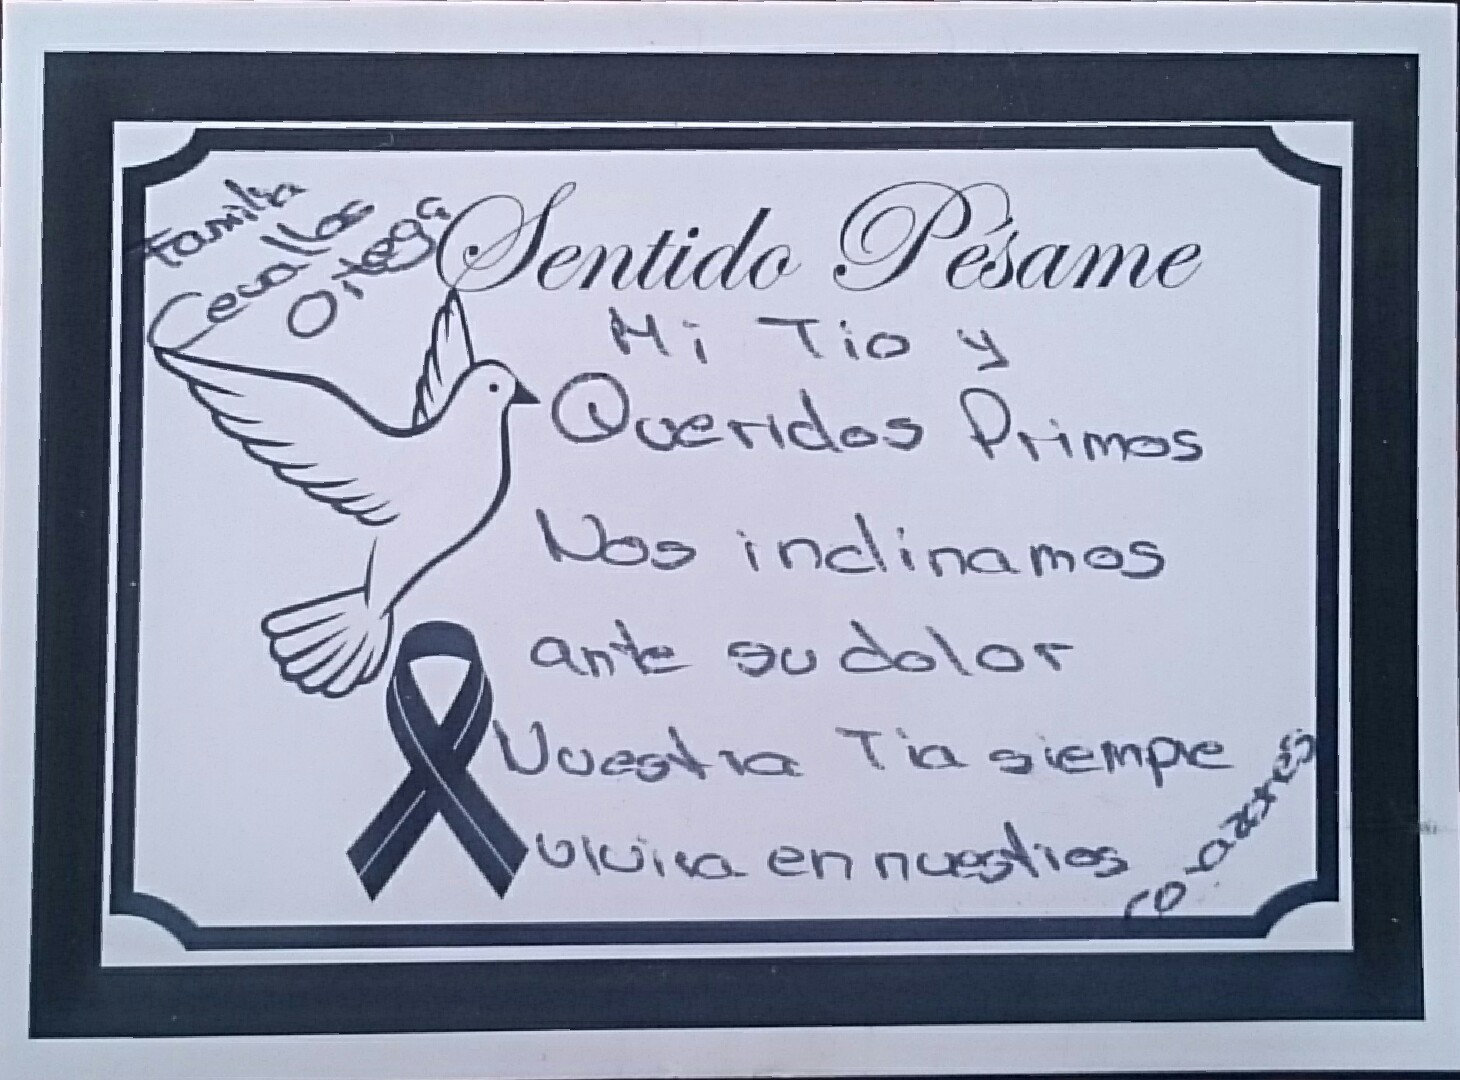 Familia
Cevallos
Ortega
Sentido Pésame
Mi Tio y
Queridos Primos
Nos inclinamos
ante su dolor
Nuestra Tia siempre
vivira en nuestros
corazones